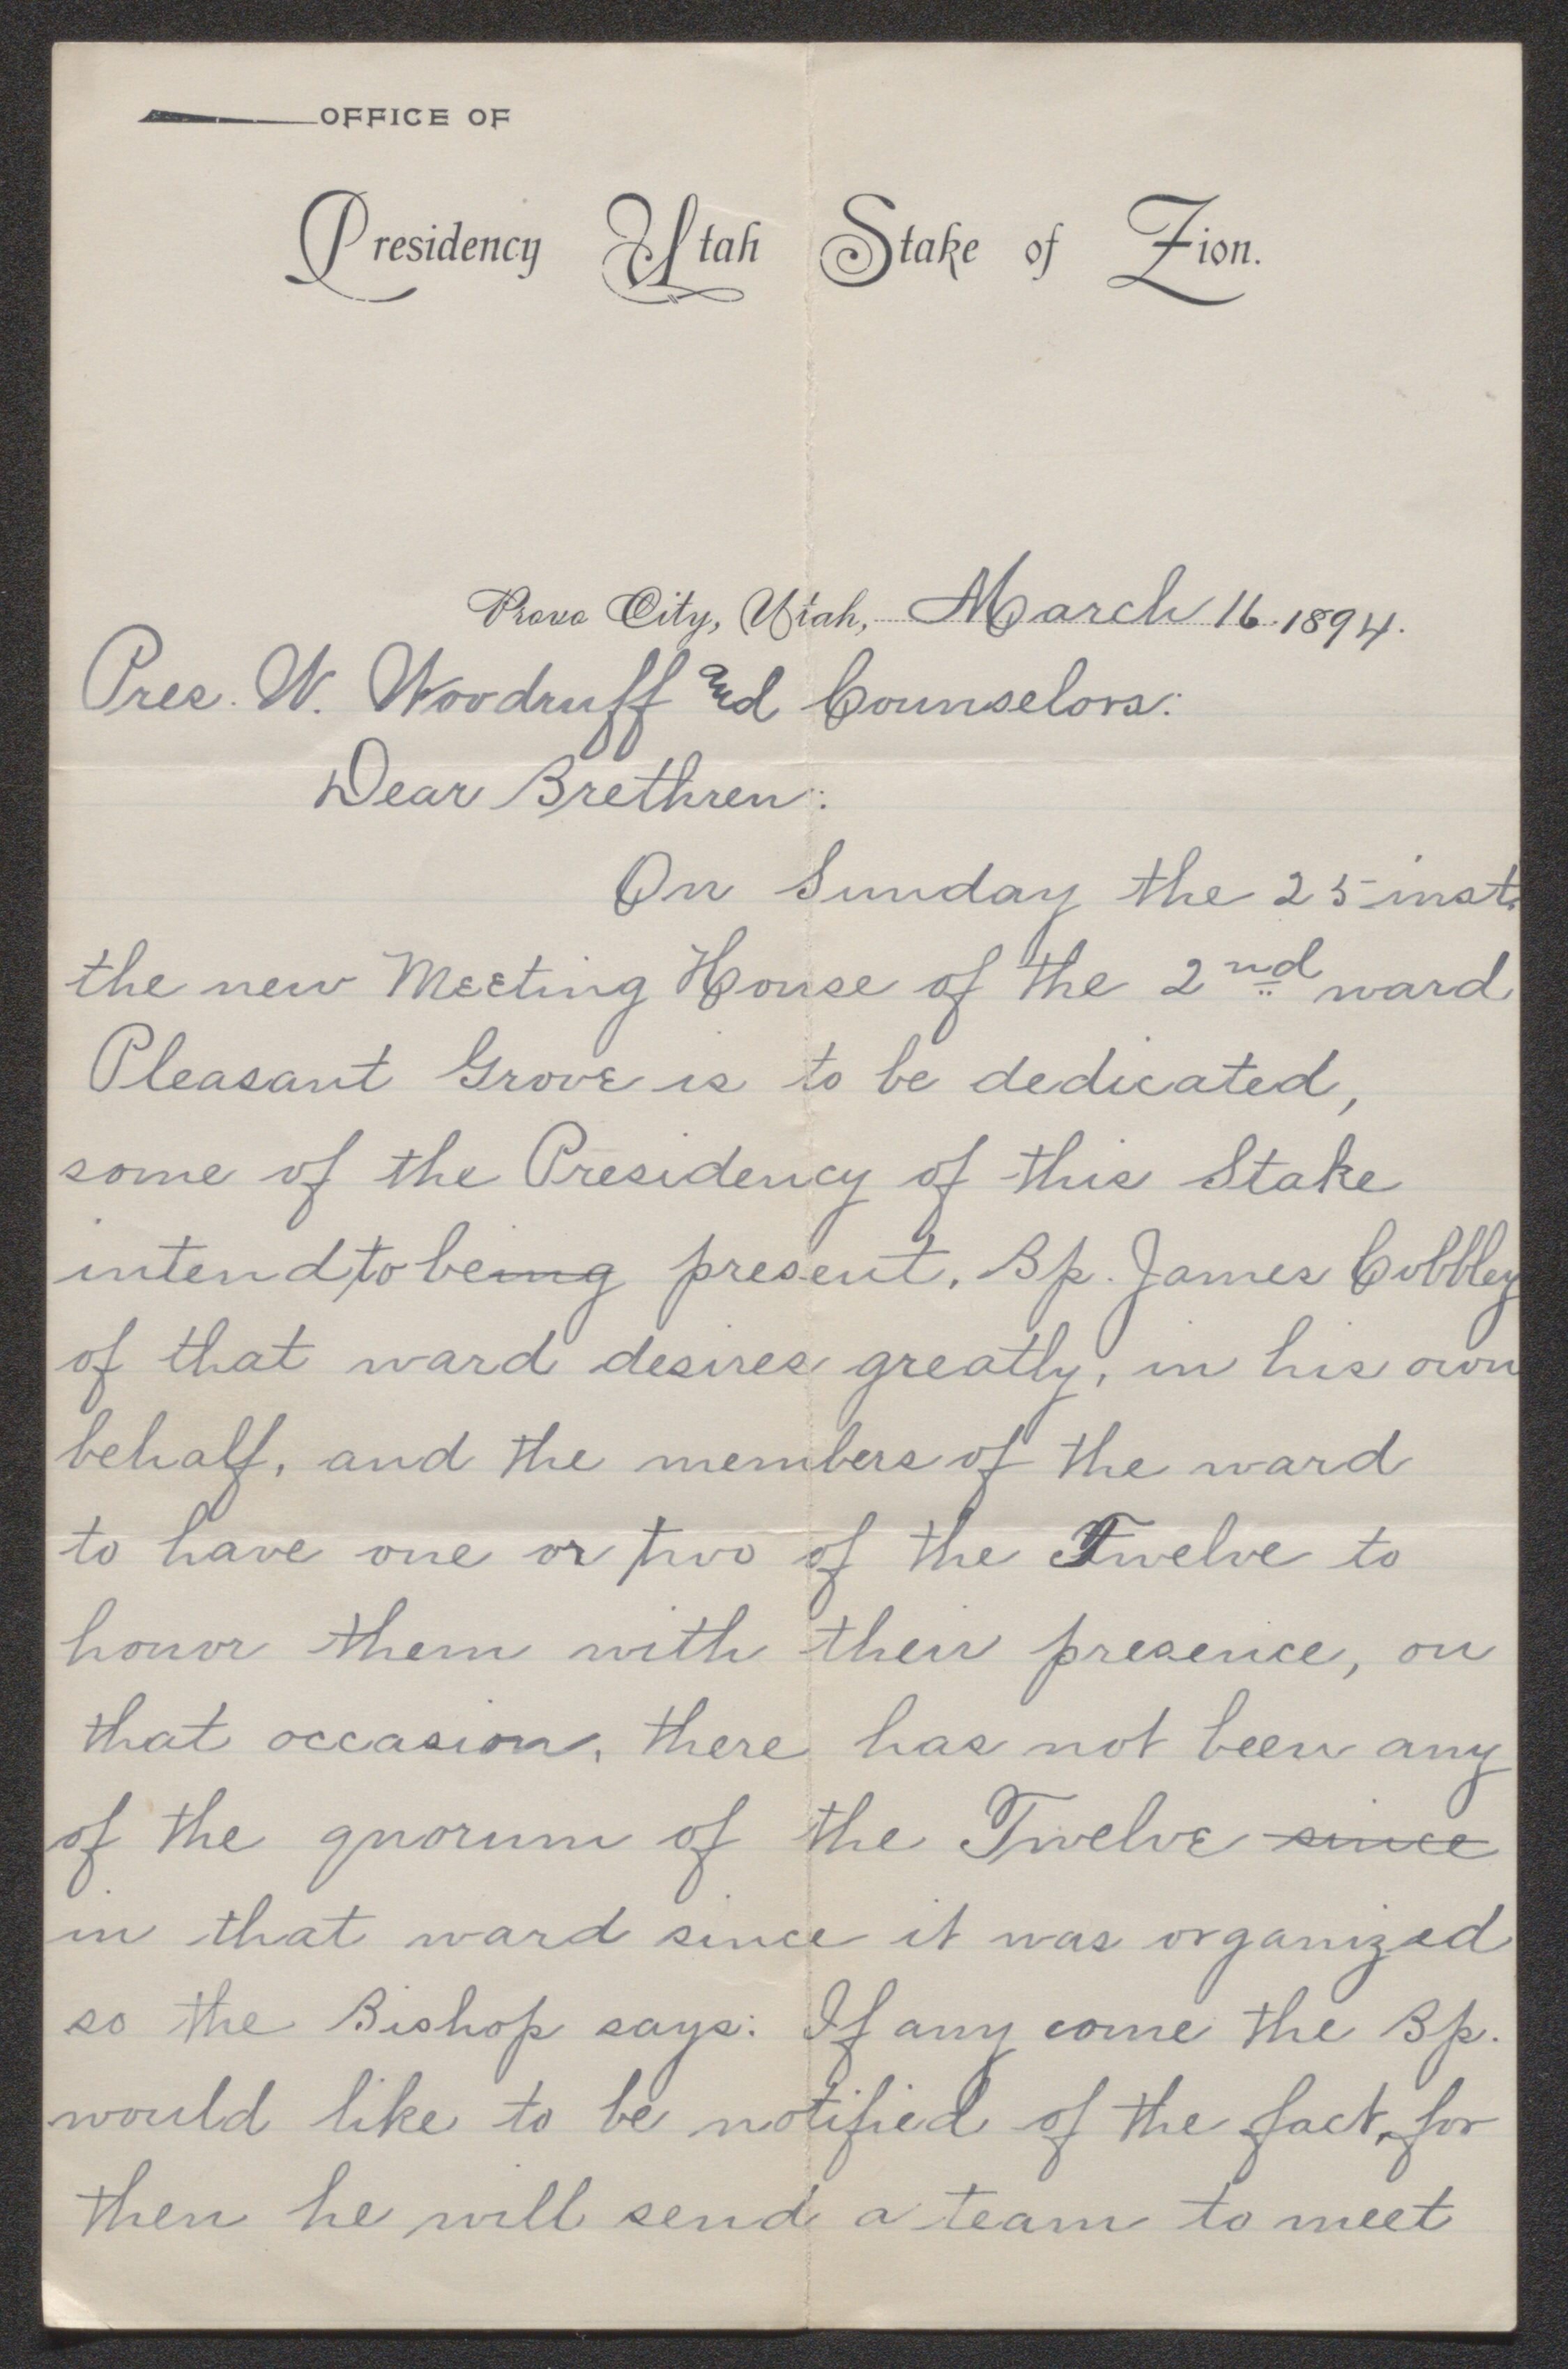 OFFICE OF
Presidency Utah Stake of Zion.
Provo City, Utah, March 16. 1894.
Pres. W. Woodruff and Counselors:
Dear Brethren:
On Sunday the 25 inst.
the new Meeting House of the 2nd ward
Pleasant Grove is to be dedicated,
some of the Presidency of this Stake
intend to being present. Bp. James Cobbley
of that ward desires greatly, in his own
behalf, and the members of the ward
to have one or two of the Twelve to
honor them with their presence, on
that occasion, there has not been any
of the quorum of the Twelve since
in that ward since it was organized
so the Bishop says: If any come the Bp.
would like to be notified of the fact, for
then he will send a team to meet